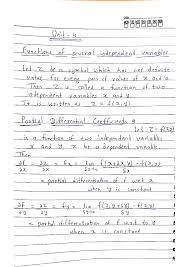 Unit - 4
Functions of several independent variables
Let Z be a symbol which has one definite
value for every pair of values of x and y.
Then Z is called a function of two
independent variables x and y.
It is written as Z = f(x,y)
Partial Differential Coefficients :
Let Z = f(x,y)
is a function of two independent variables
x and y, Z be a dependent variable.
Then
∂f/∂x = ∂z/∂x = fx = lim δx→0 f(x+δx,y) - f(x,y) / δx
= partial differentiation of f w.r.t x
when y is constant
∂f/∂y = ∂z/∂y = fy = lim δy→0 f(x,y+δy) - f(x,y) / δy
= partial differentiation of f w.r.t to y
when x is constant